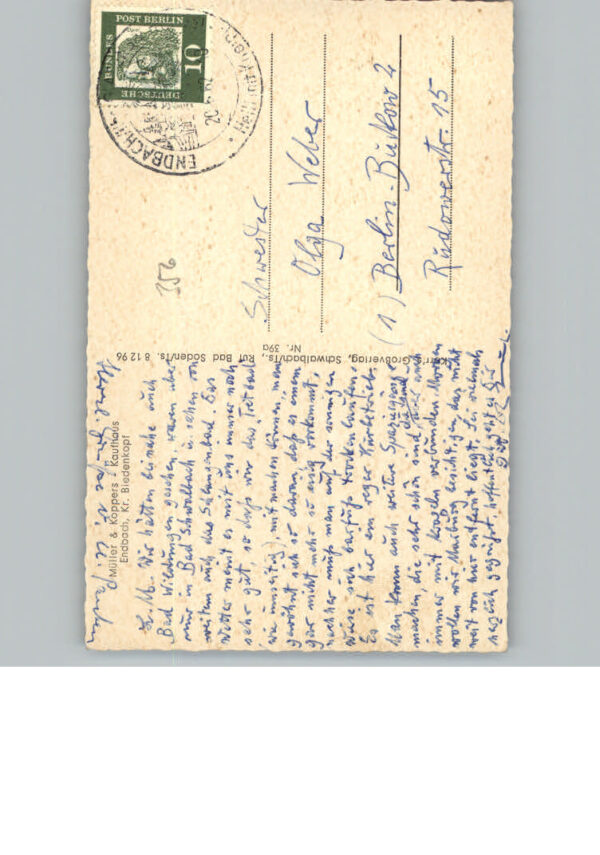 Müller & Koppers · Kaufhaus
Endbach, Kr. Biedenkopf
L. M. Wir hätten beinahe auch
Bad Wildungen gesehen, waren aber
nur in Bad Schwalbach u. sahen von
weitem auch das Schwimmbad. Das
Wetter meint es mit uns immer noch
sehr gut, so daß wir das Tretbad
(wie unsinnig), mitmachen können, man
gewöhnt sich so daran, daß es einem
gar nicht mehr so eisig vorkommt,
nachher muß man auf der sonnigen
Wiese sich barfuß trockenlaufen.
Es ist hier ein reger Kurbetrieb.
Man kann auch weitere Spaziergänge
machen, die sehr schön sind, aber auch
immer mit kraxeln verbunden. Morgen
wollen wir Marburg besichtigen, das nicht
weit von hier entfernt liegt. Sei vielmals
herzlich gegrüßt, hoffentlich geht es Dir
gut
Karr's Großverlag, Schwalbach/Ts., Ruf Bad Soden/Ts. 8 12 96
Nr. 39a
356
DEUTSCHE BUNDESPOST BERLIN
10
ENDBACH
Schwester
Olga Weber
(1) Berlin-Bukow 2
Rudowerstr. 15